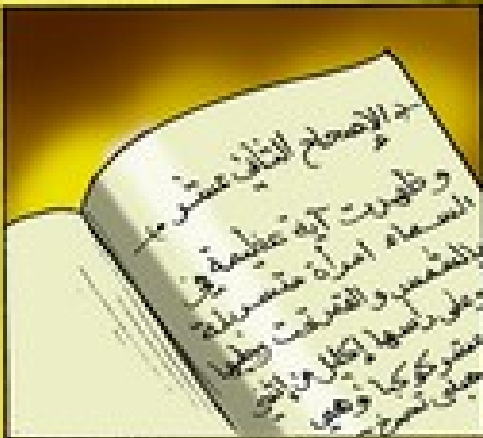 - الإصحاح الثاني عشر -
وظهرت آية عظيمة في
السماء امرأة متسربلة
بالشمس والقمر تحت رجليها
وعلى رأسها إكليل من اثني
عشر كوكبا وهي
حبلى تصرخ